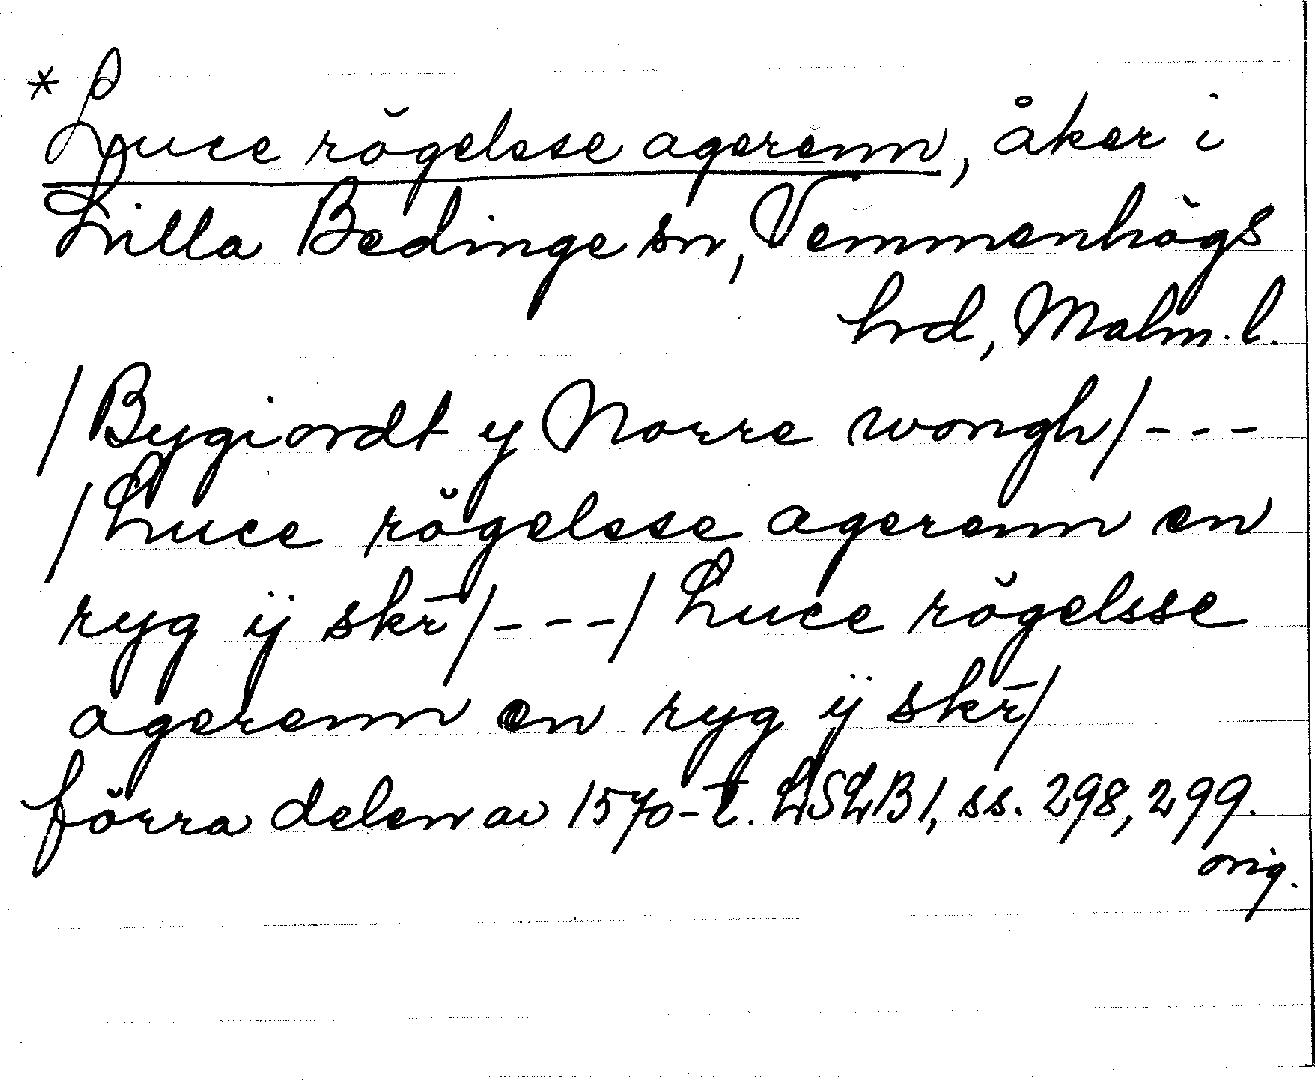 * Luce rŏgelsse agerenn, åker i
Lilla Bedinge sn, Vemmenhögs
hrd, Malm. l.
/Bygiordt y Norre wongh/---
/Luce rŏgelsse agerenn en
ryg ÿ skr̄/---/Luce rŏgelsse
agerenn en ryg ÿ skr̄/
förra delen av 1570-t. LSLB 1, ss. 298, 299.
orig.